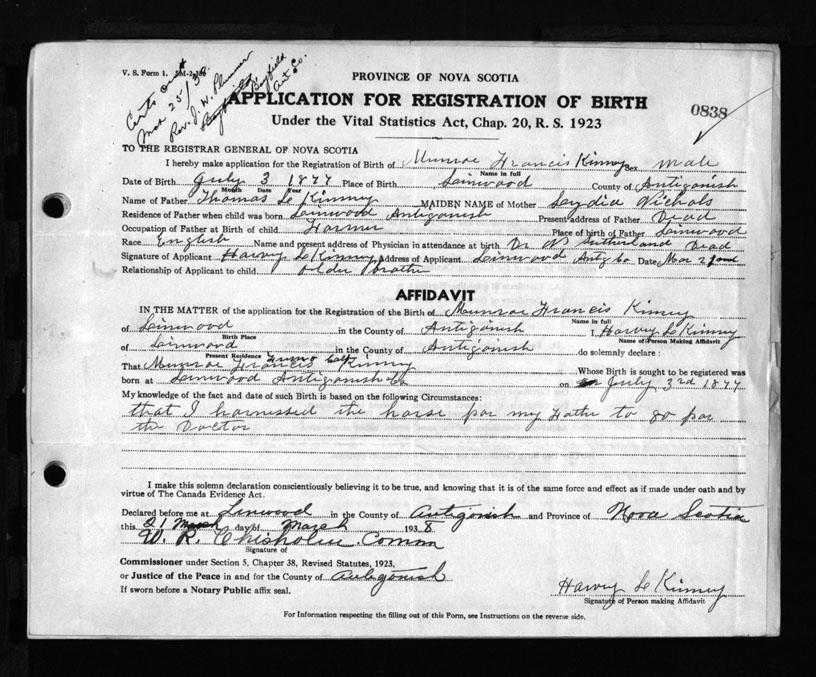 V. S. Form 1.
Certs out
Mar 25/38.
Rev. J. W. Plummer
Bayfield
Bayfield
Ant Co.
PROVINCE OF NOVA SCOTIA
APPLICATION FOR REGISTRATION OF BIRTH
0838
Under the Vital Statistics Act, Chap. 20, R. S. 1923
TO THE REGISTRAR GENERAL OF NOVA SCOTIA
I hereby make application for the Registration of Birth of Munroe Francis Kinney Sex male
Name in full
Date of Birth July 3 1877 Place of Birth Linwood County of Antigonish
Month Date Year
Name of Father Thomas Le Kinney MAIDEN NAME of Mother Lydia Nichols
Residence of Father when child was born Linwood Antigonish Present address of Father Dead
Occupation of Father at Birth of child Farmer Place of birth of Father Linwood
Race English Name and present address of Physician in attendance at birth Dr Sutherland Dead
Signature of Applicant Harvy Le Kinney Address of Applicant Linwood Antg Co Date Mar 21
Relationship of Applicant to child older Brother
AFFIDAVIT
IN THE MATTER of the application for the Registration of the Birth of Munroe Francis Kinney
Name in full
of Linwood in the County of Antigonish I, Harvy Le Kinney
Birth Place Name of Person Making Affidavit
of Linwood in the County of Antigonish do solemnly declare :
Present Residence
That Munroe Francis Kinney Whose Birth is sought to be registered was
born at Linwood Antigonish Co on July 3rd 1877
My knowledge of the fact and date of such Birth is based on the following Circumstances:
that I harnessed the horse for my Father to go for
the Doctor
I make this solemn declaration conscientiously believing it to be true, and knowing that it is of the same force and effect as if made under oath and by
virtue of The Canada Evidence Act.
Declared before me at Linwood in the County of Antigonish and Province of Nova Scotia
this 21 March day of March 1938
W. R. Chisholm Comm
Signature of
Commissioner under Section 5, Chapter 38, Revised Statutes, 1923,
or Justice of the Peace in and for the County of Antigonish
If sworn before a Notary Public affix seal.
Harvy Le Kinney
Signature of Person making Affidavit
For Information respecting the filling out of this Form, see Instructions on the reverse side.